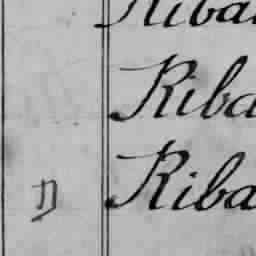 Riba
Riba
D Riba